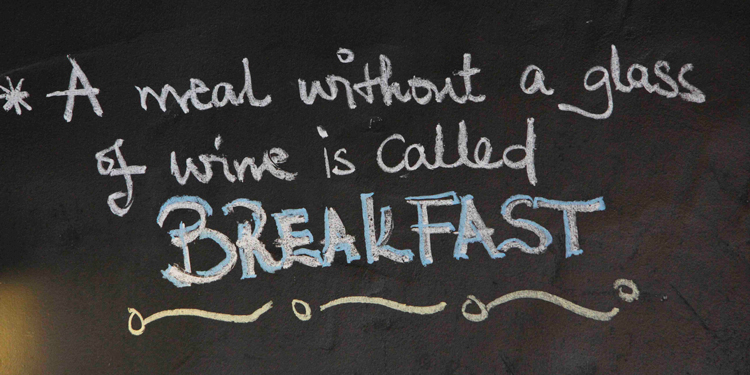 * A meal without a glass
of wine is called
BREAKFAST